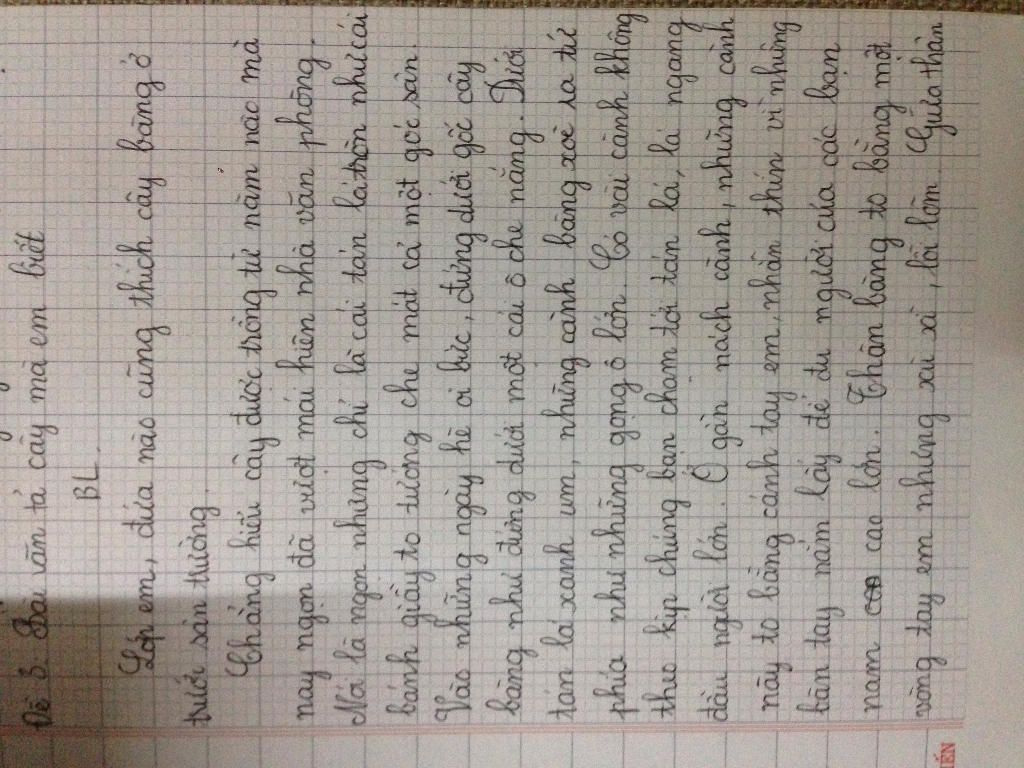 Đề 3. Bài văn tả cây mà em biết
BL.
Lớp em, đứa nào cũng thích cây bàng ở
trước sân trường.
Chẳng hiểu cây được trồng từ năm nào mà
nay ngọn đã vượt mái hiên nhà văn phòng.
Nói là ngọn nhưng chỉ là cái tán lá tròn như cái
bánh giầy to tướng che mát cả một góc sân.
Vào những ngày hè oi bức, đứng dưới gốc cây
bàng như đứng dưới một cái ô che nắng. Dưới
tán lá xanh um, những cành bàng xòe ra tứ
phía như những gọng ô lớn. Có vài cành không
theo kịp chúng bạn chạm tới tán lá, là ngang
đầu người lớn. Ở gần nách cành, những cành
này to bằng cánh tay em, nhẵn thín vì những
bàn tay nắm lấy để đu người của các bạn
nam cao lớn. Thân bàng to bằng một
vòng tay em nhưng xù xì, lồi lõm. Giữa thân
ẾN